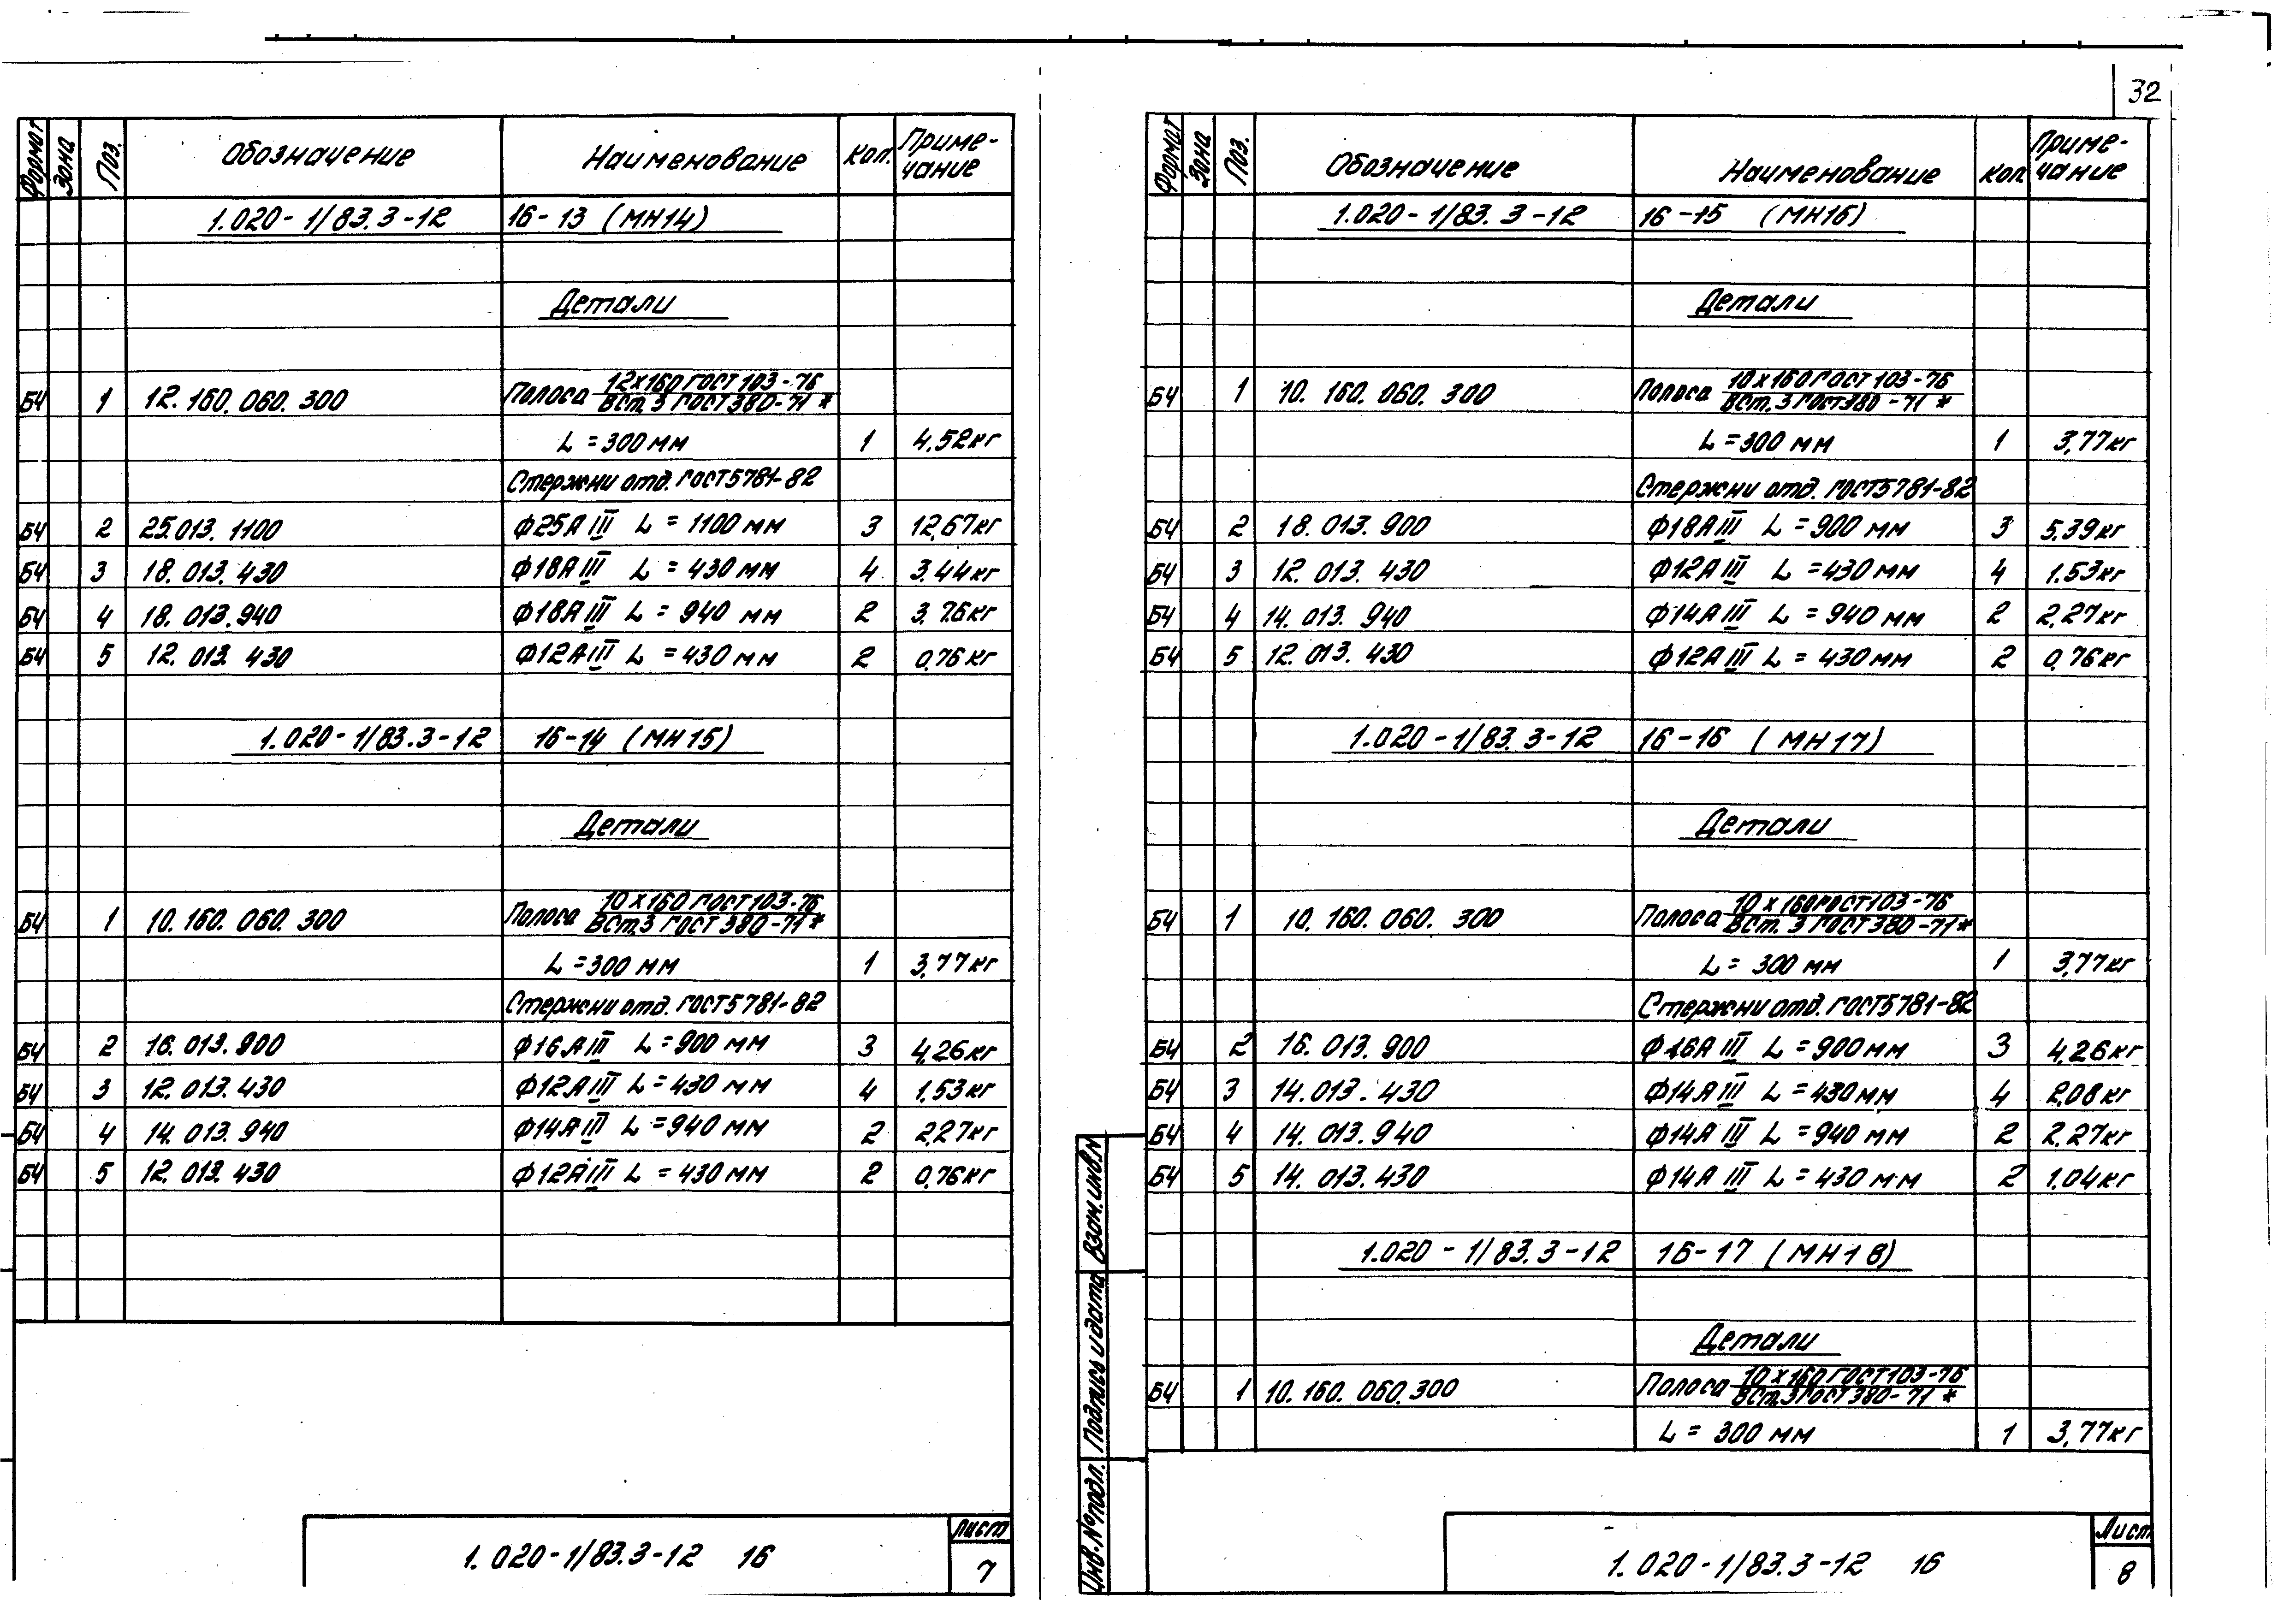 32
Формат Зона Поз. Обозначение Наименование Кол. Приме-
чание
1.020-1/83.3-12 16-13 (МН14)
Детали
БЧ 1 12.160.060.300 Полоса 12х160 ГОСТ 103-76
ВСт.3 ГОСТ 380-71*
L = 300 мм 1 4,52кг
Стержни отд. ГОСТ 5781-82
БЧ 2 25.013.1100 Ф25АIII L = 1100 мм 3 12,67кг
БЧ 3 18.013.430 Ф18АIII L = 430 мм 4 3.44кг
БЧ 4 18.013.940 Ф18АIII L = 940 мм 2 3.76кг
БЧ 5 12.013.430 Ф12АIII L = 430 мм 2 0,76кг
1.020-1/83.3-12 16-14 (МН15)
Детали
БЧ 1 10.160.060.300 Полоса 10х160 ГОСТ 103-76
ВСт.3 ГОСТ 380-71*
L = 300 мм 1 3,77кг
Стержни отд. ГОСТ 5781-82
БЧ 2 16.013.900 Ф16АIII L = 900 мм 3 4,26кг
БЧ 3 12.013.430 Ф12АIII L = 430 мм 4 1.53кг
БЧ 4 14.013.940 Ф14АIII L = 940 мм 2 2,27кг
БЧ 5 12.013.430 Ф12АIII L = 430 мм 2 0,76кг
1.020-1/83.3-12 16
Лист
7
Формат Зона Поз. Обозначение Наименование Кол. Приме-
чание
1.020-1/83.3-12 16-15 (МН16)
Детали
БЧ 1 10.160.060.300 Полоса 10х160 ГОСТ 103-76
ВСт.3 ГОСТ 380-71*
L = 300 мм 1 3,77кг
Стержни отд. ГОСТ 5781-82
БЧ 2 18.013.900 Ф18АIII L = 900 мм 3 5,39кг
БЧ 3 12.013.430 Ф12АIII L = 430 мм 4 1.53кг
БЧ 4 14.013.940 Ф14АIII L = 940 мм 2 2,27кг
БЧ 5 12.013.430 Ф12АIII L = 430 мм 2 0,76кг
1.020-1/83.3-12 16-16 (МН17)
Детали
БЧ 1 10.160.060.300 Полоса 10х160 ГОСТ 103-76
ВСт.3 ГОСТ 380-71*
L = 300 мм 1 3,77кг
Стержни отд. ГОСТ 5781-82
БЧ 2 16.013.900 Ф16АIII L = 900 мм 3 4,26кг
БЧ 3 14.013.430 Ф14АIII L = 430 мм 4 2,08кг
БЧ 4 14.013.940 Ф14АIII L = 940 мм 2 2,27кг
БЧ 5 14.013.430 Ф14АIII L = 430 мм 2 1.04кг
1.020-1/83.3-12 16-17 (МН18)
Детали
БЧ 1 10.160.060.300 Полоса 10х160 ГОСТ 103-76
ВСт.3 ГОСТ 380-71*
L = 300 мм 1 3,77кг
Инв.№подл. Подпись и дата Взам.инв.N
1.020-1/83.3-12 16
Лист
8